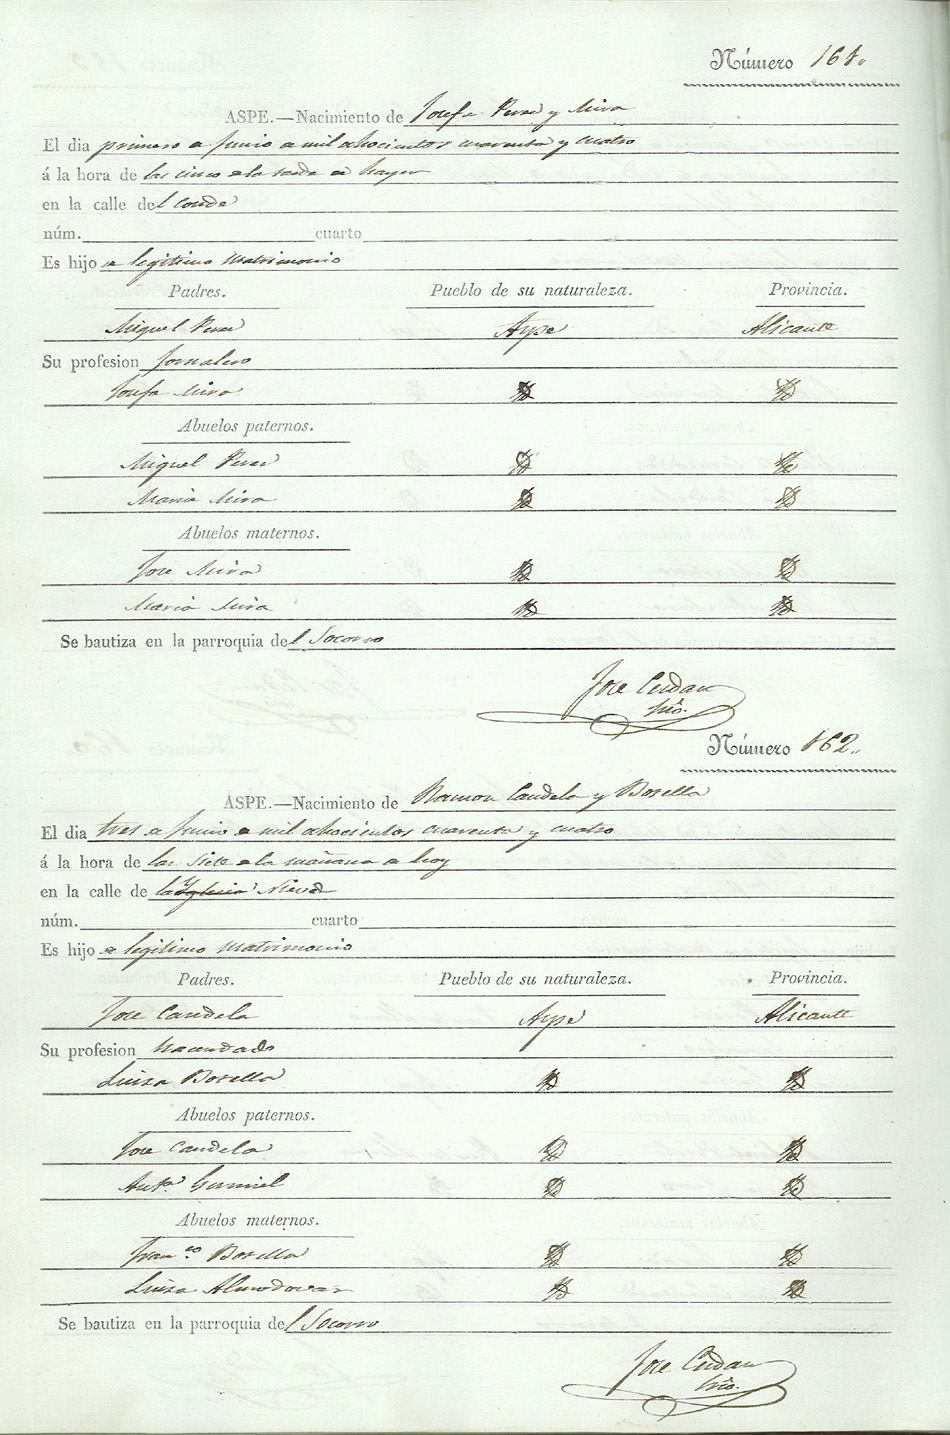 Número 161.
ASPE.—Nacimiento de Josefa Perez y Mira
El dia primero de Junio de mil ahocientos cuarenta y cuatro
á la hora de las cinco de la tarde de hayer
en la calle del Conde
núm. cuarto
Es hijo de legitimo Matrimonio
Padres. Pueblo de su naturaleza. Provincia.
Miguel Perez Aspe Alicante
Su profesion Jornalero
Josefa Mira
Abuelos paternos.
Miguel Perez
Maria Mira
Abuelos maternos.
Jose Mira
Maria Mira
Se bautiza en la parroquia del Socorro
Jose
Número 162.
ASPE.—Nacimiento de Ramon Candela y Botella
El dia tres de Junio de mil ahocientos cuarenta y cuatro
á la hora de las siete de la mañana de hoy
en la calle de la Yglecia Nueva
núm. cuarto
Es hijo de legitimo Matrimonio
Padres. Pueblo de su naturaleza. Provincia.
Jose Candela Aspe Alicante
Su profesion hacendado
Luisa Botella
Abuelos paternos.
Jose Candela
Anta. Gumiel
Abuelos maternos.
Franco. Botella
Luisa Almodovar
Se bautiza en la parroquia del Socorro
Jose